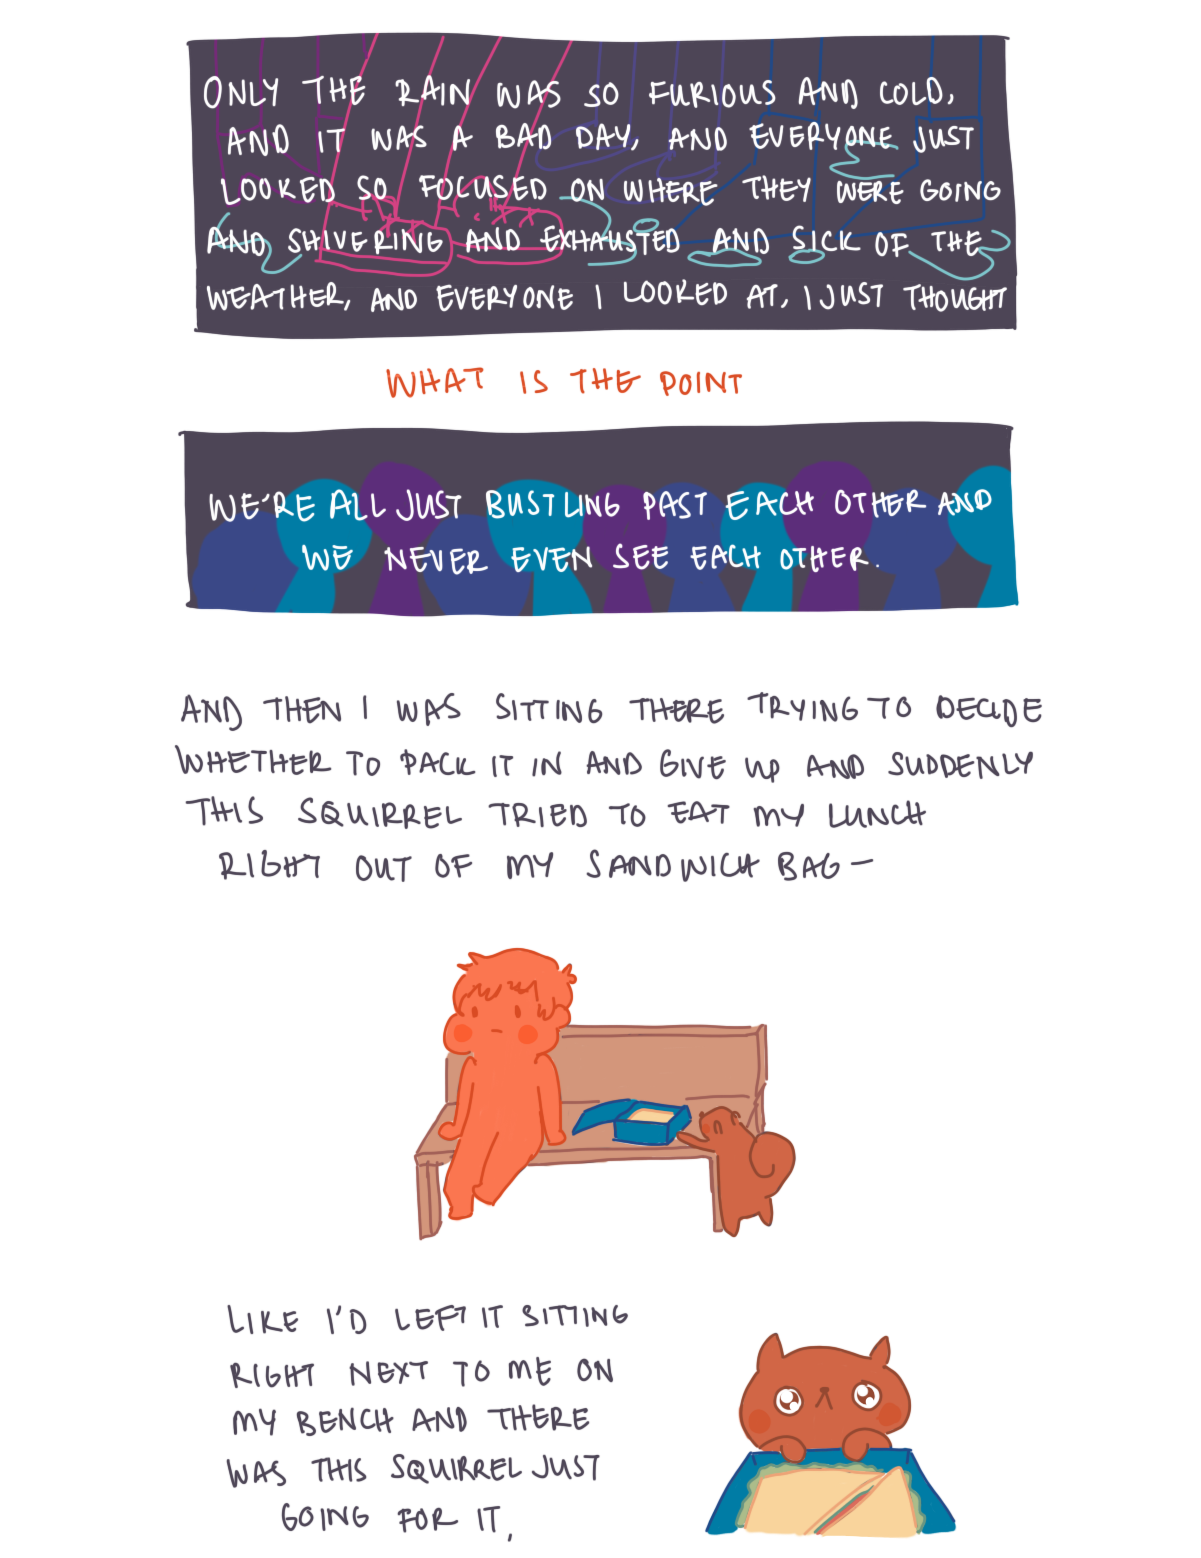 ONLY THE RAIN WAS SO FURIOUS AND COLD,
AND IT WAS A BAD DAY, AND EVERYONE JUST
LOOKED SO FOCUSED ON WHERE THEY WERE GOING
AND SHIVERING AND EXHAUSTED AND SICK OF THE
WEATHER, AND EVERYONE I LOOKED AT, I JUST THOUGHT
WHAT IS THE POINT
WE'RE ALL JUST BUSTLING PAST EACH OTHER AND
WE NEVER EVEN SEE EACH OTHER.
AND THEN I WAS SITTING THERE TRYING TO DECIDE
WHETHER TO PACK IT IN AND GIVE UP AND SUDDENLY
THIS SQUIRREL TRIED TO EAT MY LUNCH
RIGHT OUT OF MY SANDWICH BAG—
LIKE I'D LEFT IT SITTING
RIGHT NEXT TO ME ON
MY BENCH AND THERE
WAS THIS SQUIRREL JUST
GOING FOR IT,